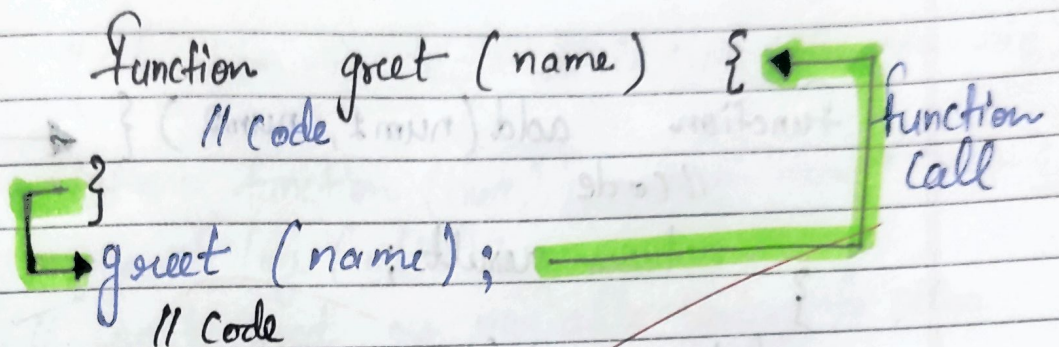 function greet (name) {
// code
}
greet (name);
// code
function
call